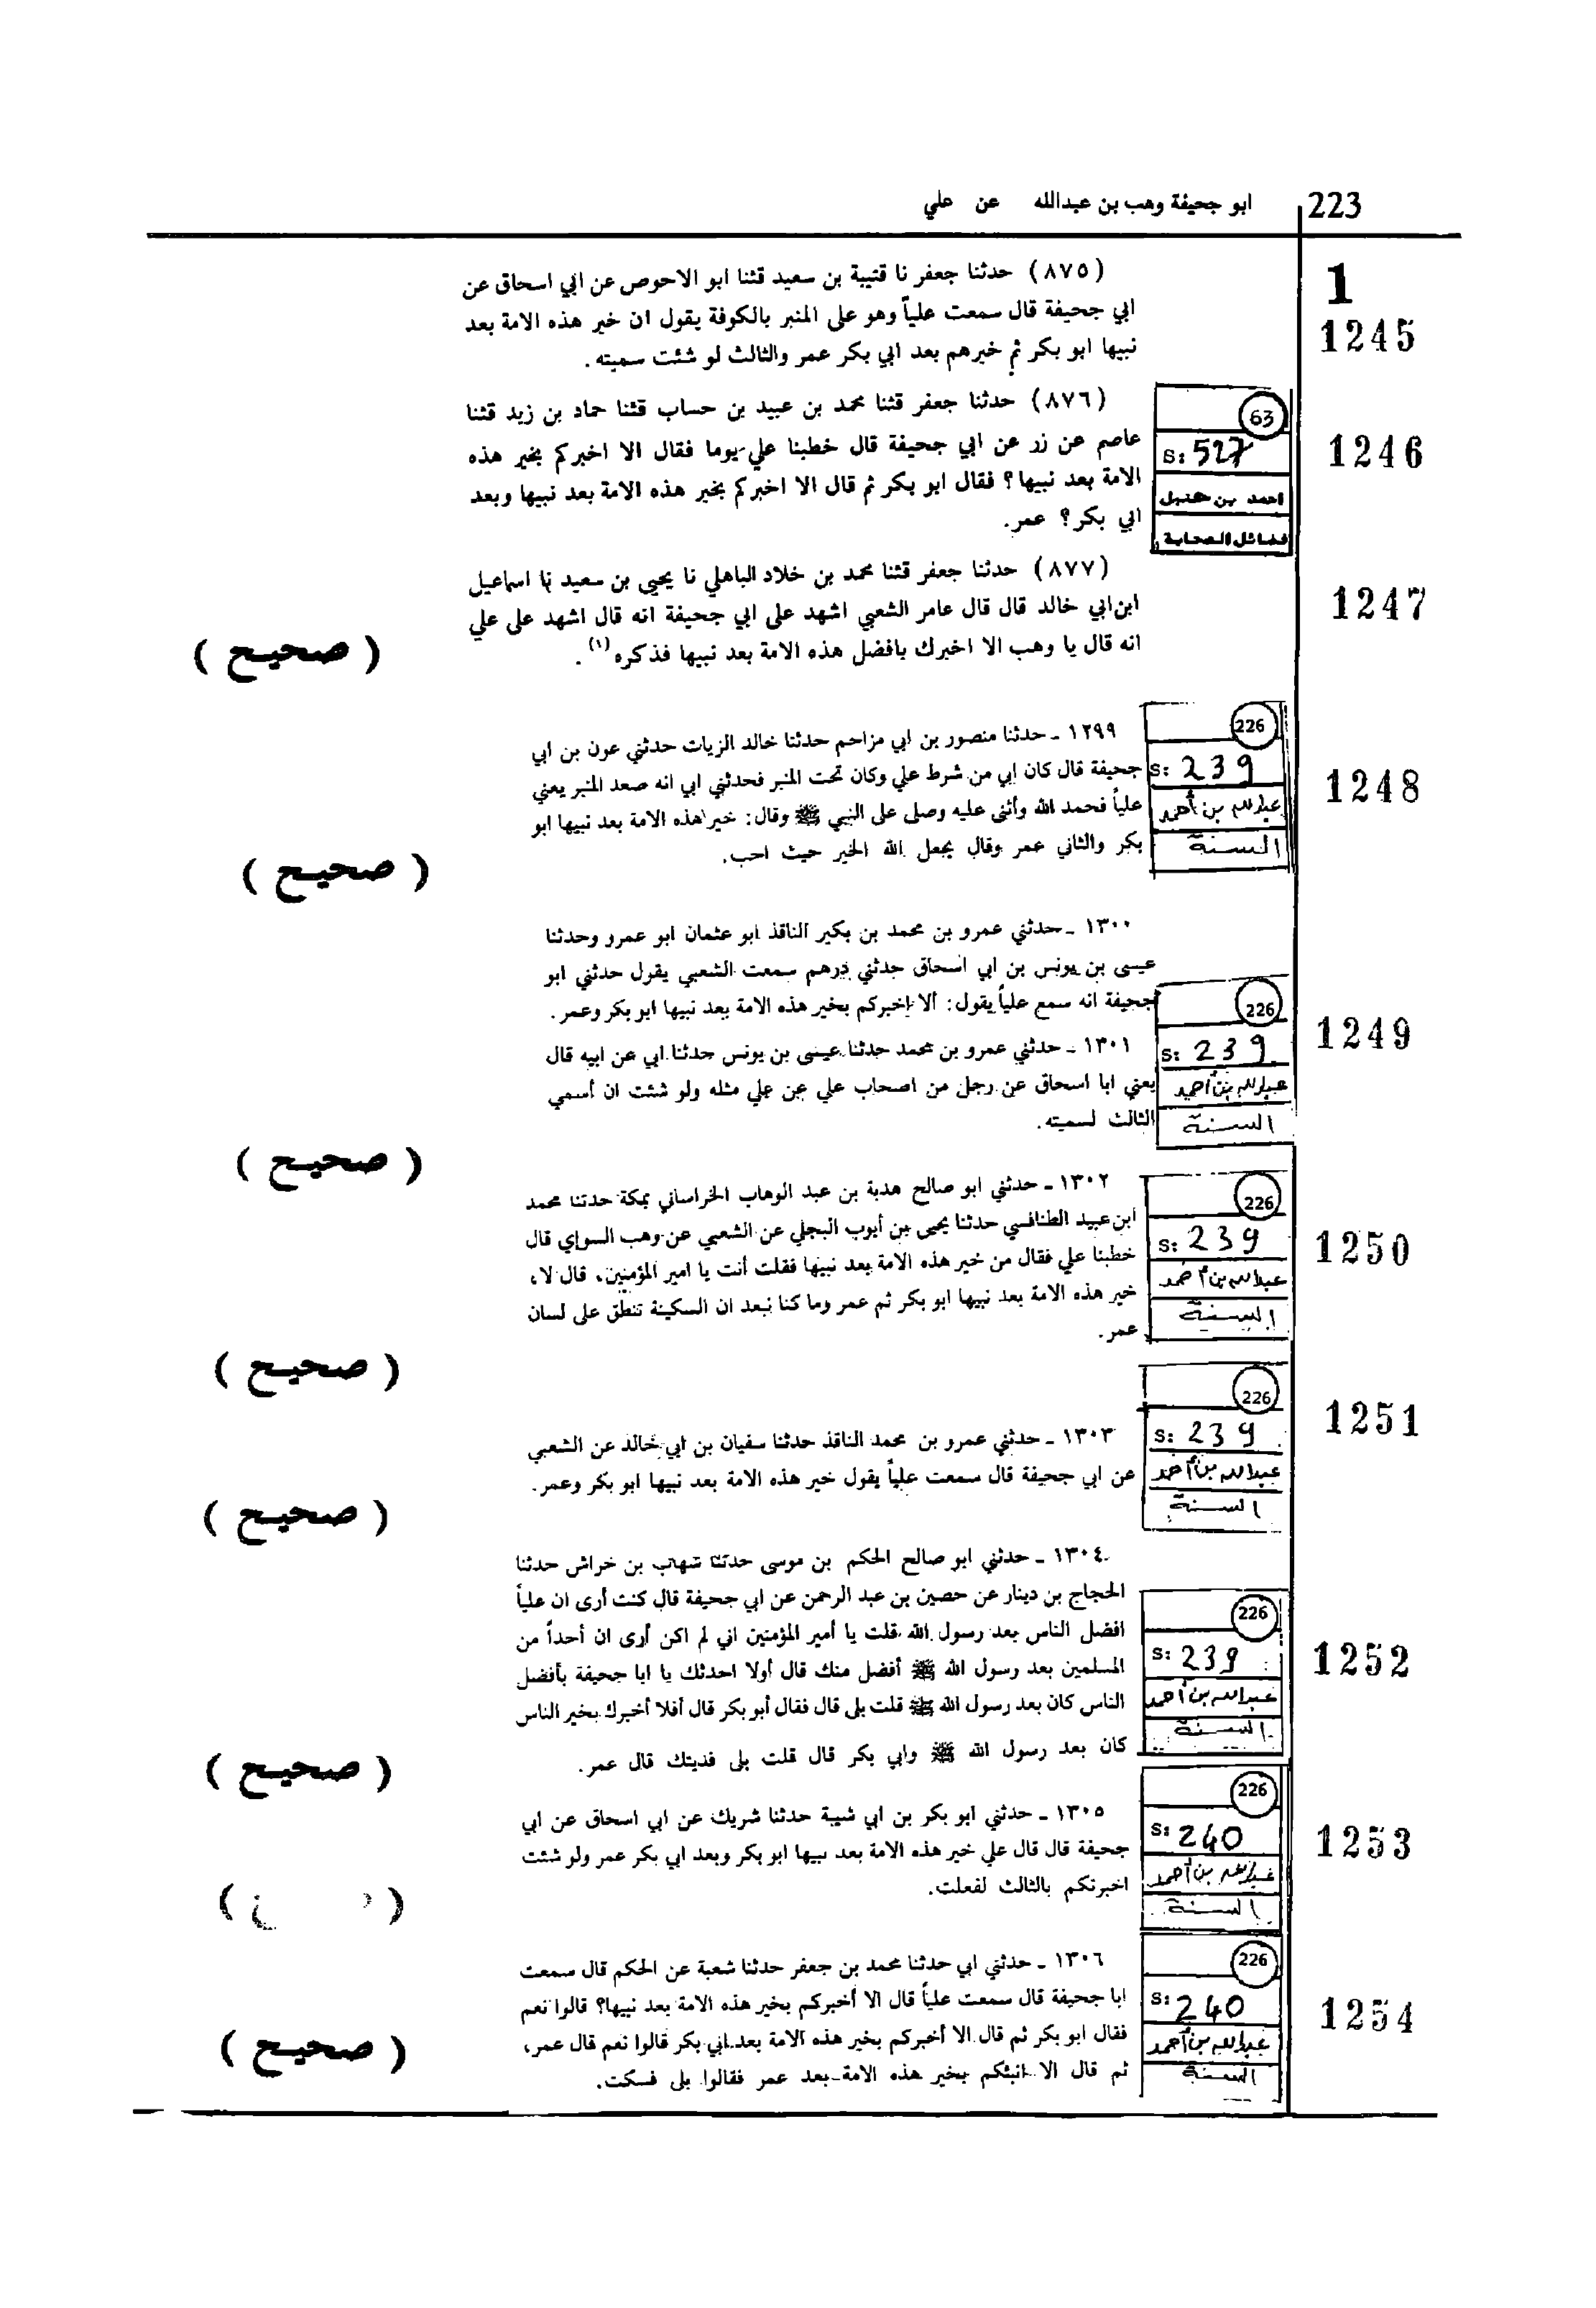 223
ابو جحيفة وهب بن عبدالله عن علي
1
1245
(٨٧٥) حدثنا جعفر نا قتيبة بن سعيد قثنا ابو الاحوص عن ابي اسحاق عن
ابي جحيفة قال سمعت علياً وهو على المنبر بالكوفة يقول ان خير هذه الامة بعد
نبيها ابو بكر ثم خيرهم بعد ابي بكر عمر والثالث لو شئت سميته .
1246
63
S: 527
احمد بن حنبل
فضائل الصحابة
(٨٧٦) حدثنا جعفر قثنا محمد بن عبيد بن حساب قثنا حماد بن زيد قثنا
عاصم عن زر عن ابي جحيفة قال خطبنا علي يوما فقال الا اخبركم بخير هذه
الامة بعد نبيها؟ فقال ابو بكر ثم قال الا اخبركم بخير هذه الامة بعد نبيها وبعد
ابي بكر؟ عمر.
1247
(٨٧٧) حدثنا جعفر قثنا محمد بن خلاد الباهلي نا يحيى بن سعيد نا اسماعيل
ابن ابي خالد قال قال عامر الشعبي اشهد على ابي جحيفة انه قال اشهد على علي
انه قال يا وهب الا اخبرك بافضل هذه الامة بعد نبيها فذكره (١) .
( صحيح )
1248
226
S: 239
عبدالله بن أحمد
السنة
١٢٩٩ - حدثنا منصور بن ابي مزاحم حدثنا خالد الزيات حدثني عون بن ابي
جحيفة قال كان ابي من شرط علي وكان تحت المنبر فحدثني ابي انه صعد المنبر يعني
علياً فحمد الله وأثنى عليه وصلى على النبي ﷺ وقال: خير هذه الامة بعد نبيها ابو
بكر والثاني عمر وقال يجعل الله الخير حيث احب.
( صحيح )
1249
226
S: 239
عبدالله بن أحمد
السنة
١٣٠٠ - حدثني عمرو بن محمد بن بكير الناقذ ابو عثمان ابو عمرو وحدثنا
عيسى بن يونس بن ابي اسحاق حدثني درهم سمعت الشعبي يقول حدثني ابو
جحيفة انه سمع علياً يقول: ألا اخبركم بخير هذه الامة بعد نبيها ابو بكر وعمر.
١٣٠١ - حدثني عمرو بن محمد حدثنا عيسى بن يونس حدثنا ابي عن ابيه قال
يعني ابا اسحاق عن رجل من اصحاب علي عن علي مثله ولو شئت ان أسمي
الثالث لسميته.
( صحيح )
1250
226
S: 239
عبدالله بن أحمد
السنة
١٣٠٢ - حدثني ابو صالح هدبة بن عبد الوهاب الخراساني بمكة حدثنا محمد
ابن عبيد الطنافسي حدثنا يحيى بن أيوب البجلي عن الشعبي عن وهب السواي قال
خطبنا علي فقال من خير هذه الامة بعد نبيها فقلت أنت يا امير المؤمنين، قال لا،
خير هذه الامة بعد نبيها ابو بكر ثم عمر وما كنا نبعد ان السكينة تنطق على لسان
عمر.
( صحيح )
1251
226
S: 239
عبدالله بن أحمد
السنة
١٣٠٣ - حدثني عمرو بن محمد الناقذ حدثنا سفيان بن ابي خالد عن الشعبي
عن ابي جحيفة قال سمعت علياً يقول خير هذه الامة بعد نبيها ابو بكر وعمر.
( صحيح )
1252
226
S: 239
عبدالله بن أحمد
السنة
١٣٠٤ - حدثني ابو صالح الحكم بن موسى حدثنا شهاب بن خراش حدثنا
الحجاج بن دينار عن حصين بن عبد الرحمن عن ابي جحيفة قال كنت أرى ان علياً
افضل الناس بعد رسول الله قلت يا أمير المؤمنين اني لم اكن أرى ان أحداً من
المسلمين بعد رسول الله ﷺ أفضل منك قال أولا احدثك يا ابا جحيفة بأفضل
الناس كان بعد رسول الله ﷺ قلت بلى قال فقال أبو بكر قال أفلا أخبرك بخير الناس
كان بعد رسول الله ﷺ وابي بكر قال قلت بلى فديتك قال عمر.
( صحيح )
1253
226
S: 240
عبدالله بن أحمد
السنة
١٣٠٥ - حدثني ابو بكر بن ابي شيبة حدثنا شريك عن ابي اسحاق عن ابي
جحيفة قال قال علي خير هذه الامة بعد نبيها ابو بكر وبعد ابي بكر عمر ولو شئت
اخبرتكم بالثالث لفعلت.
1254
226
S: 240
عبدالله بن أحمد
السنة
١٣٠٦ - حدثني ابي حدثنا محمد بن جعفر حدثنا شعبة عن الحكم قال سمعت
ابا جحيفة قال سمعت علياً قال الا أخبركم بخير هذه الامة بعد نبيها؟ قالوا نعم
فقال ابو بكر ثم قال الا أخبركم بخير هذه الامة بعد ابي بكر قالوا نعم قال عمر،
ثم قال الا انبئكم بخير هذه الامة بعد عمر فقالوا بلى فسكت.
( صحيح )